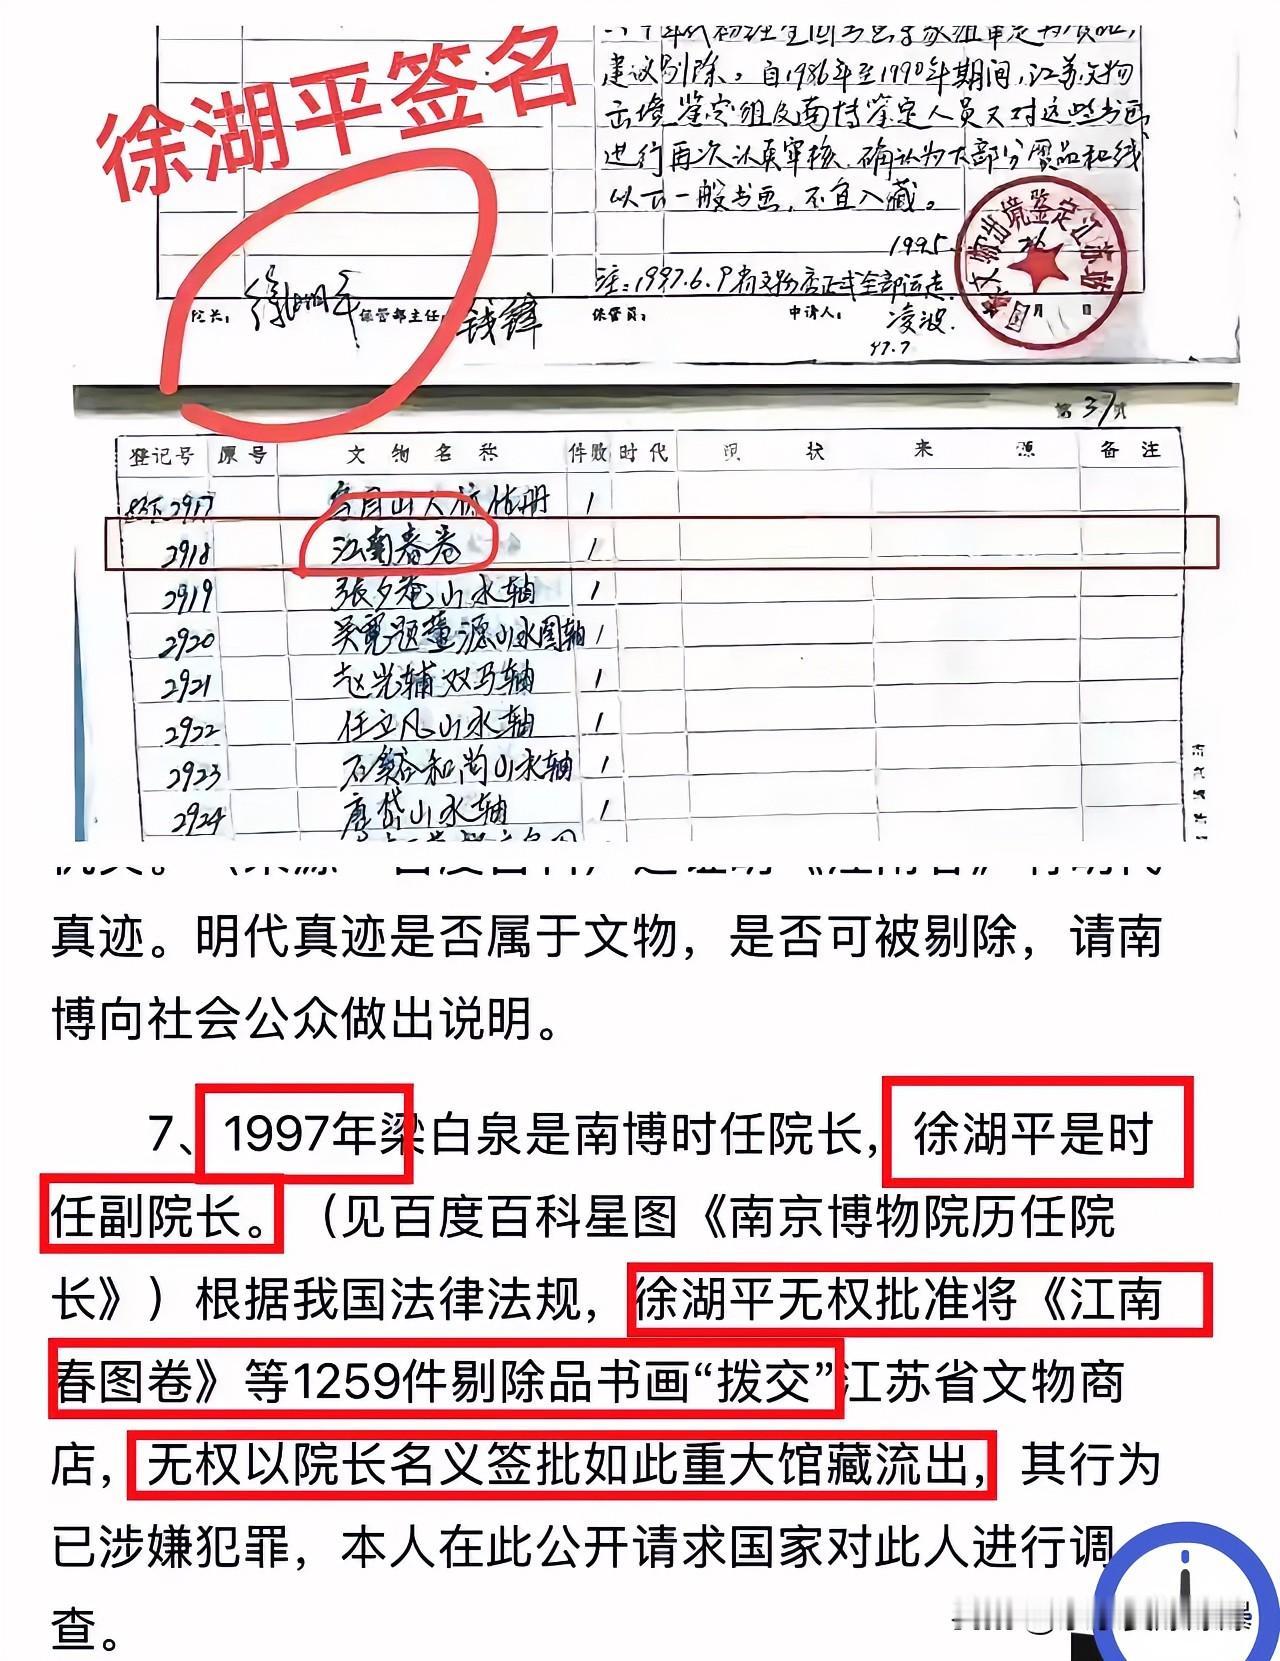 徐湖平签名
建议剔除。自1986年至1990年期间,江苏文物
出境鉴定组及南博鉴定人员又对这些书画
进行再次认真审核,确认为大部分赝品和线
以下一般书画,不宜入藏。
1995.
注:1997.6.9
院长: 徐湖平 保管部主任: 钱锋 保管员: 申请人: 凌波.
97.7
第37页
登记号 原号 文物名称 件数 时代 现状 来源 备注
2917 1
2918 江南春卷 1
2919 張夕菴山水轴 1
2920 吴寬题董源山水图轴 1
2921 赵光辅双马轴 1
2922 任立凡山水轴 1
2923 石溪和尚山水轴 1
2924 唐岱山水轴 1
真迹。明代真迹是否属于文物,是否可被剔除,请南
博向社会公众做出说明。
7、1997年梁白泉是南博时任院长,徐湖平是时
任副院长。(见百度百科星图《南京博物院历任院
长》)根据我国法律法规,徐湖平无权批准将《江南
春图卷》等1259件剔除品书画“拨交”江苏省文物商
店,无权以院长名义签批如此重大馆藏流出,其行为
已涉嫌犯罪,本人在此公开请求国家对此人进行调
查。